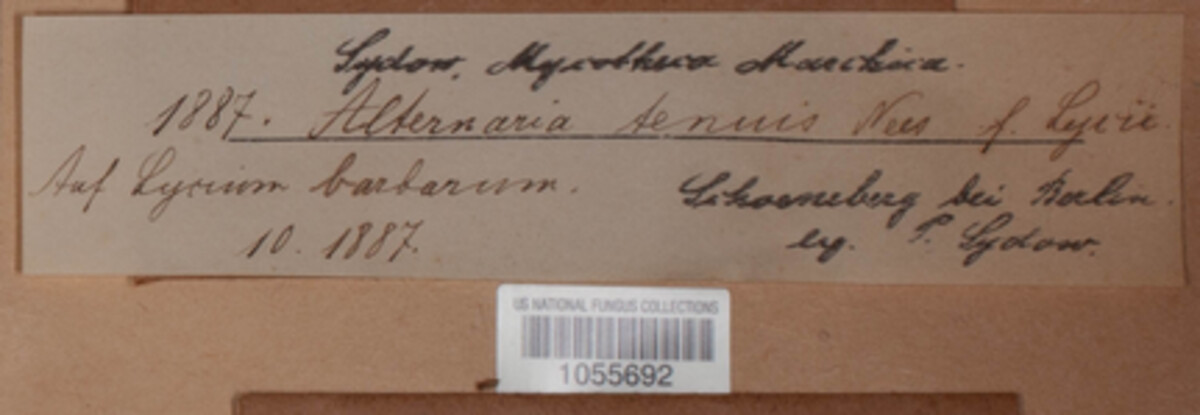 Sydow, Mycotheca Marchica.
1887. Alternaria tenuis Nees f. Lycii.
Auf Lycium barbarum.
Schoeneberg bei Berlin.
10. 1887.
leg. P. Sydow.
US NATIONAL FUNGUS COLLECTIONS
1055692